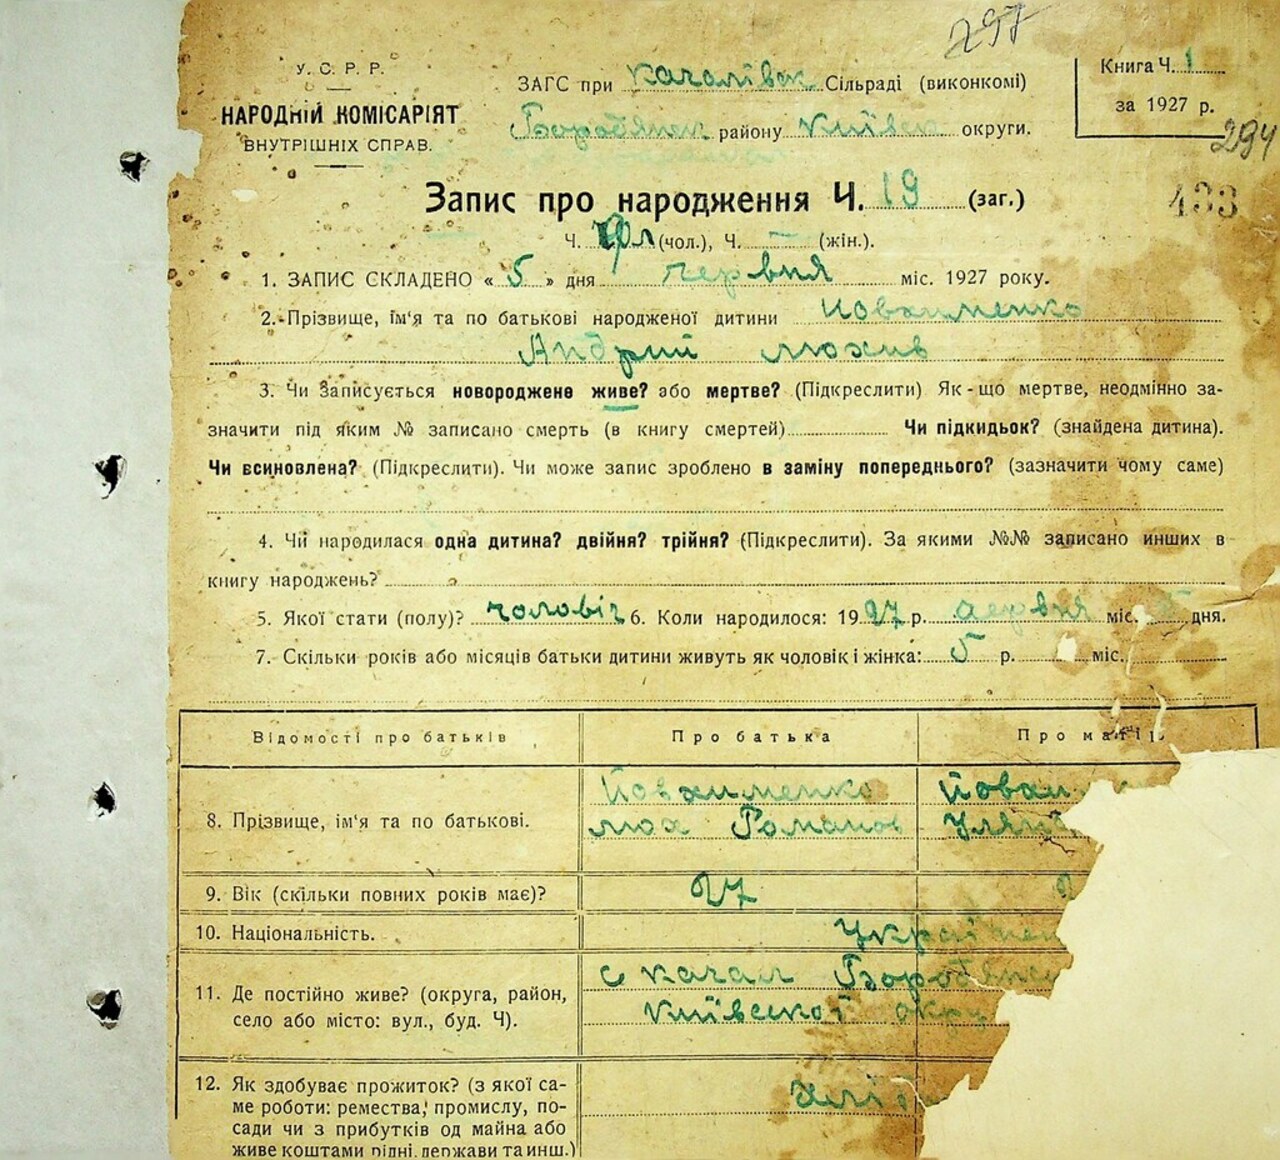 297
У. С. Р. Р.
НАРОДНІЙ КОМІСАРІЯТ
ВНУТРІШНІХ СПРАВ.
ЗАГС при Качалівск Сільраді (виконкомі)
Бородянск району Київск округи.
Книга Ч. 1
за 1927 р.
294
433
Запис про народження Ч. 19 (заг.)
Ч. (чол.), Ч. — (жін.).
1. ЗАПИС СКЛАДЕНО « 5 » дня червня міс. 1927 року.
2. Прізвище, ім'я та по батькові народженої дитини Йовхименко
Андрий мохив
3. Чи Записується новороджене живе? або мертве? (Підкреслити) Як-що мертве, неодмінно за-
значити під яким № записано смерть (в книгу смертей) Чи підкидьок? (знайдена дитина).
Чи всиновлена? (Підкреслити). Чи може запис зроблено в заміну попереднього? (зазначити чому саме)
4. Чи народилася одна дитина? двійня? трійня? (Підкреслити). За якими №№ записано инших в
книгу народжень?
5. Якої стати (полу)? чоловіч 6. Коли народилося: 1927 р. червня міс. дня.
7. Скільки років або місяців батьки дитини живуть як чоловік і жінка: 5 р. міс.
Відомості про батьків Про батька Про матір
8. Прізвище, ім'я та по батькові. Йовхименко Йовхи
мох Романов Улян
9. Вік (скільки повних років має)? 27 2
10. Національність. Україн
11. Де постійно живе? (округа, район, с Качал Бородянск
село або місто: вул., буд. Ч). Київської окру
12. Як здобуває прожиток? (з якої са- хліб
ме роботи: ремества, промислу, по-
сади чи з прибутків од майна або
живе коштами рідні, держави та инш.)